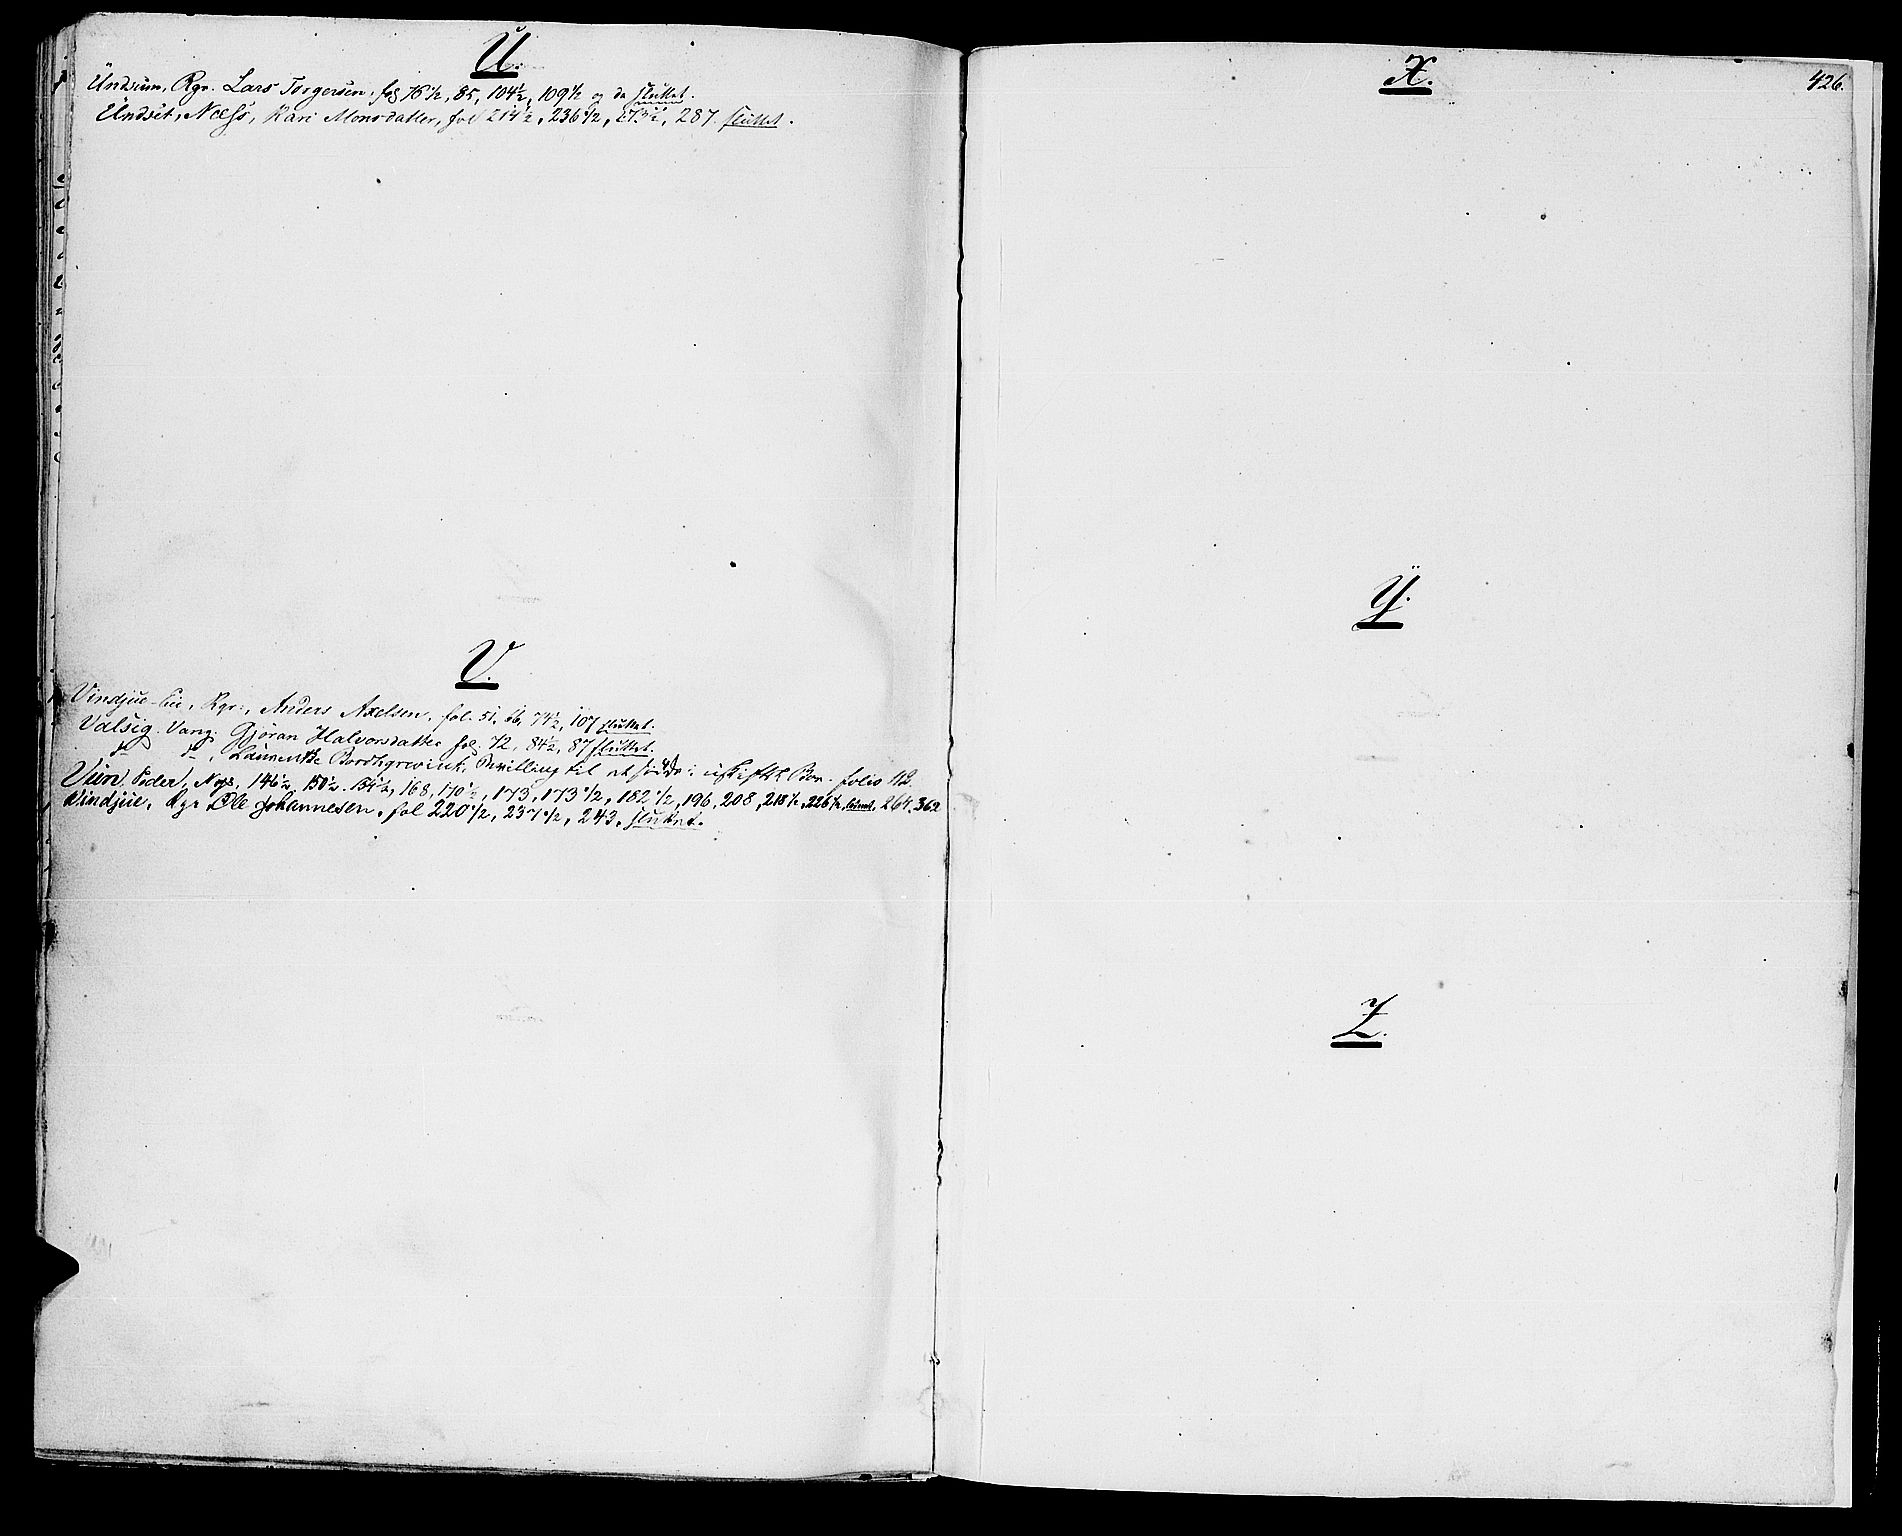 U.
Undsum, Rgr. Lars Torgersen, fol 76 1/2, 85, 104 1/2, 109 1/2 og da sluttet.
Undset, Næss, Kari Monsdatter, fol 214 1/2, 236 1/2, 273 1/2, 287. sluttet.
V.
Vindjue-Eie, Rgr:, Anders Axelsen, fol. 51, 66, 74 1/2, 107 sluttet.
Valsig. Vang. Gjøran Halvorsdatter fol. 72, 84 1/2, 87 sluttet.
do do, Laurentze Borchgrevink, Bevilling til at sidde i uskiftet Bo. folio 112.
Vien, Peder, Næs, 146 1/2, 150 1/2. 154 1/2, 168, 170 1/2, 173, 173 1/2, 182 1/2, 196, 208, 218 1/2, 226 1/2, 264. 362
Vindjue, Rgr Ole Johannesen, fol 220 1/2, 237 1/2, 243, sluttet.
X.
426.
Y.
Z.